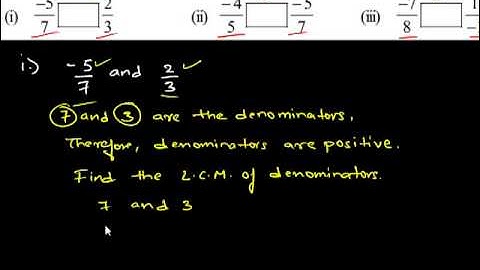 (i) -5/7 □ 2/3 (ii) -4/5 □ -5/7 (iii) -7/8 □
i.) -5/7 and 2/3
7 and 3 are the denominators,
Therefore, denominators are positive.
Find the L.C.M. of denominators.
7 and 3